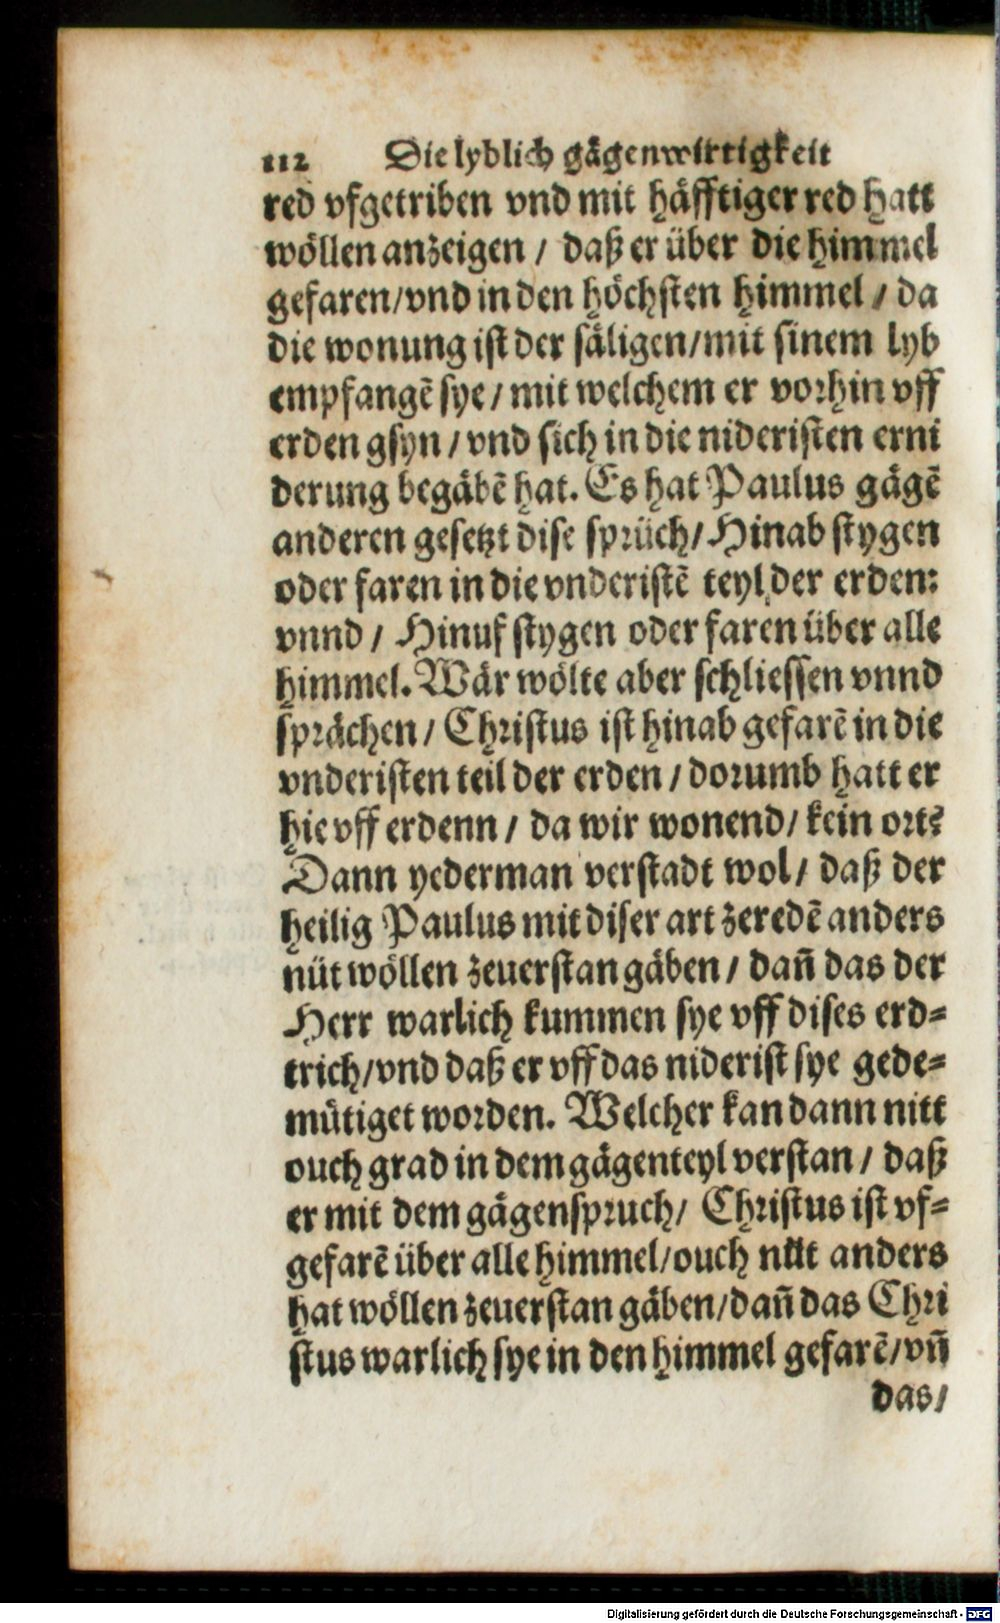 112 Die lyblich gägenwirtigkeit
red vfgetriben vnd mit häfftiger red hatt
wöllen anzeigen / daß er über die himmel
gefaren/vnd in den höchsten himmel / da
die wonung ist der säligen/mit sinem lyb
empfangē sye / mit welchem er vorhin vff
erden gsyn / vnd sich in die nideristen erni
derung begäbē hat. Es hat Paulus gägē
anderen gesetzt dise sprüch/ Hinab stygen
oder faren in die vnderistē teyl der erden:
vnnd / Hinuf stygen oder faren über alle
himmel. Wär wölte aber schliessen vnnd
sprächen / Christus ist hinab gefarē in die
vnderisten teil der erden / dorumb hatt er
hie vff erdenn / da wir wonend/ kein ort?
Dann yederman verstadt wol/ daß der
heilig Paulus mit diser art zeredē anders
nüt wöllen zeuerstan gäben / dañ das der
Herr warlich kummen sye vff dises erd-
trich/vnd daß er vff das niderist sye gede-
mütiget worden. Welcher kan dann nitt
ouch grad in dem gägenteyl verstan / daß
er mit dem gägenspruch/ Christus ist vf-
gefarē über alle himmel/ouch nüt anders
hat wöllen zeuerstan gäben/dañ das Chri
stus warlich sye in den himmel gefarē/vñ
das/
Digitalisierung gefördert durch die Deutsche Forschungsgemeinschaft - DFG